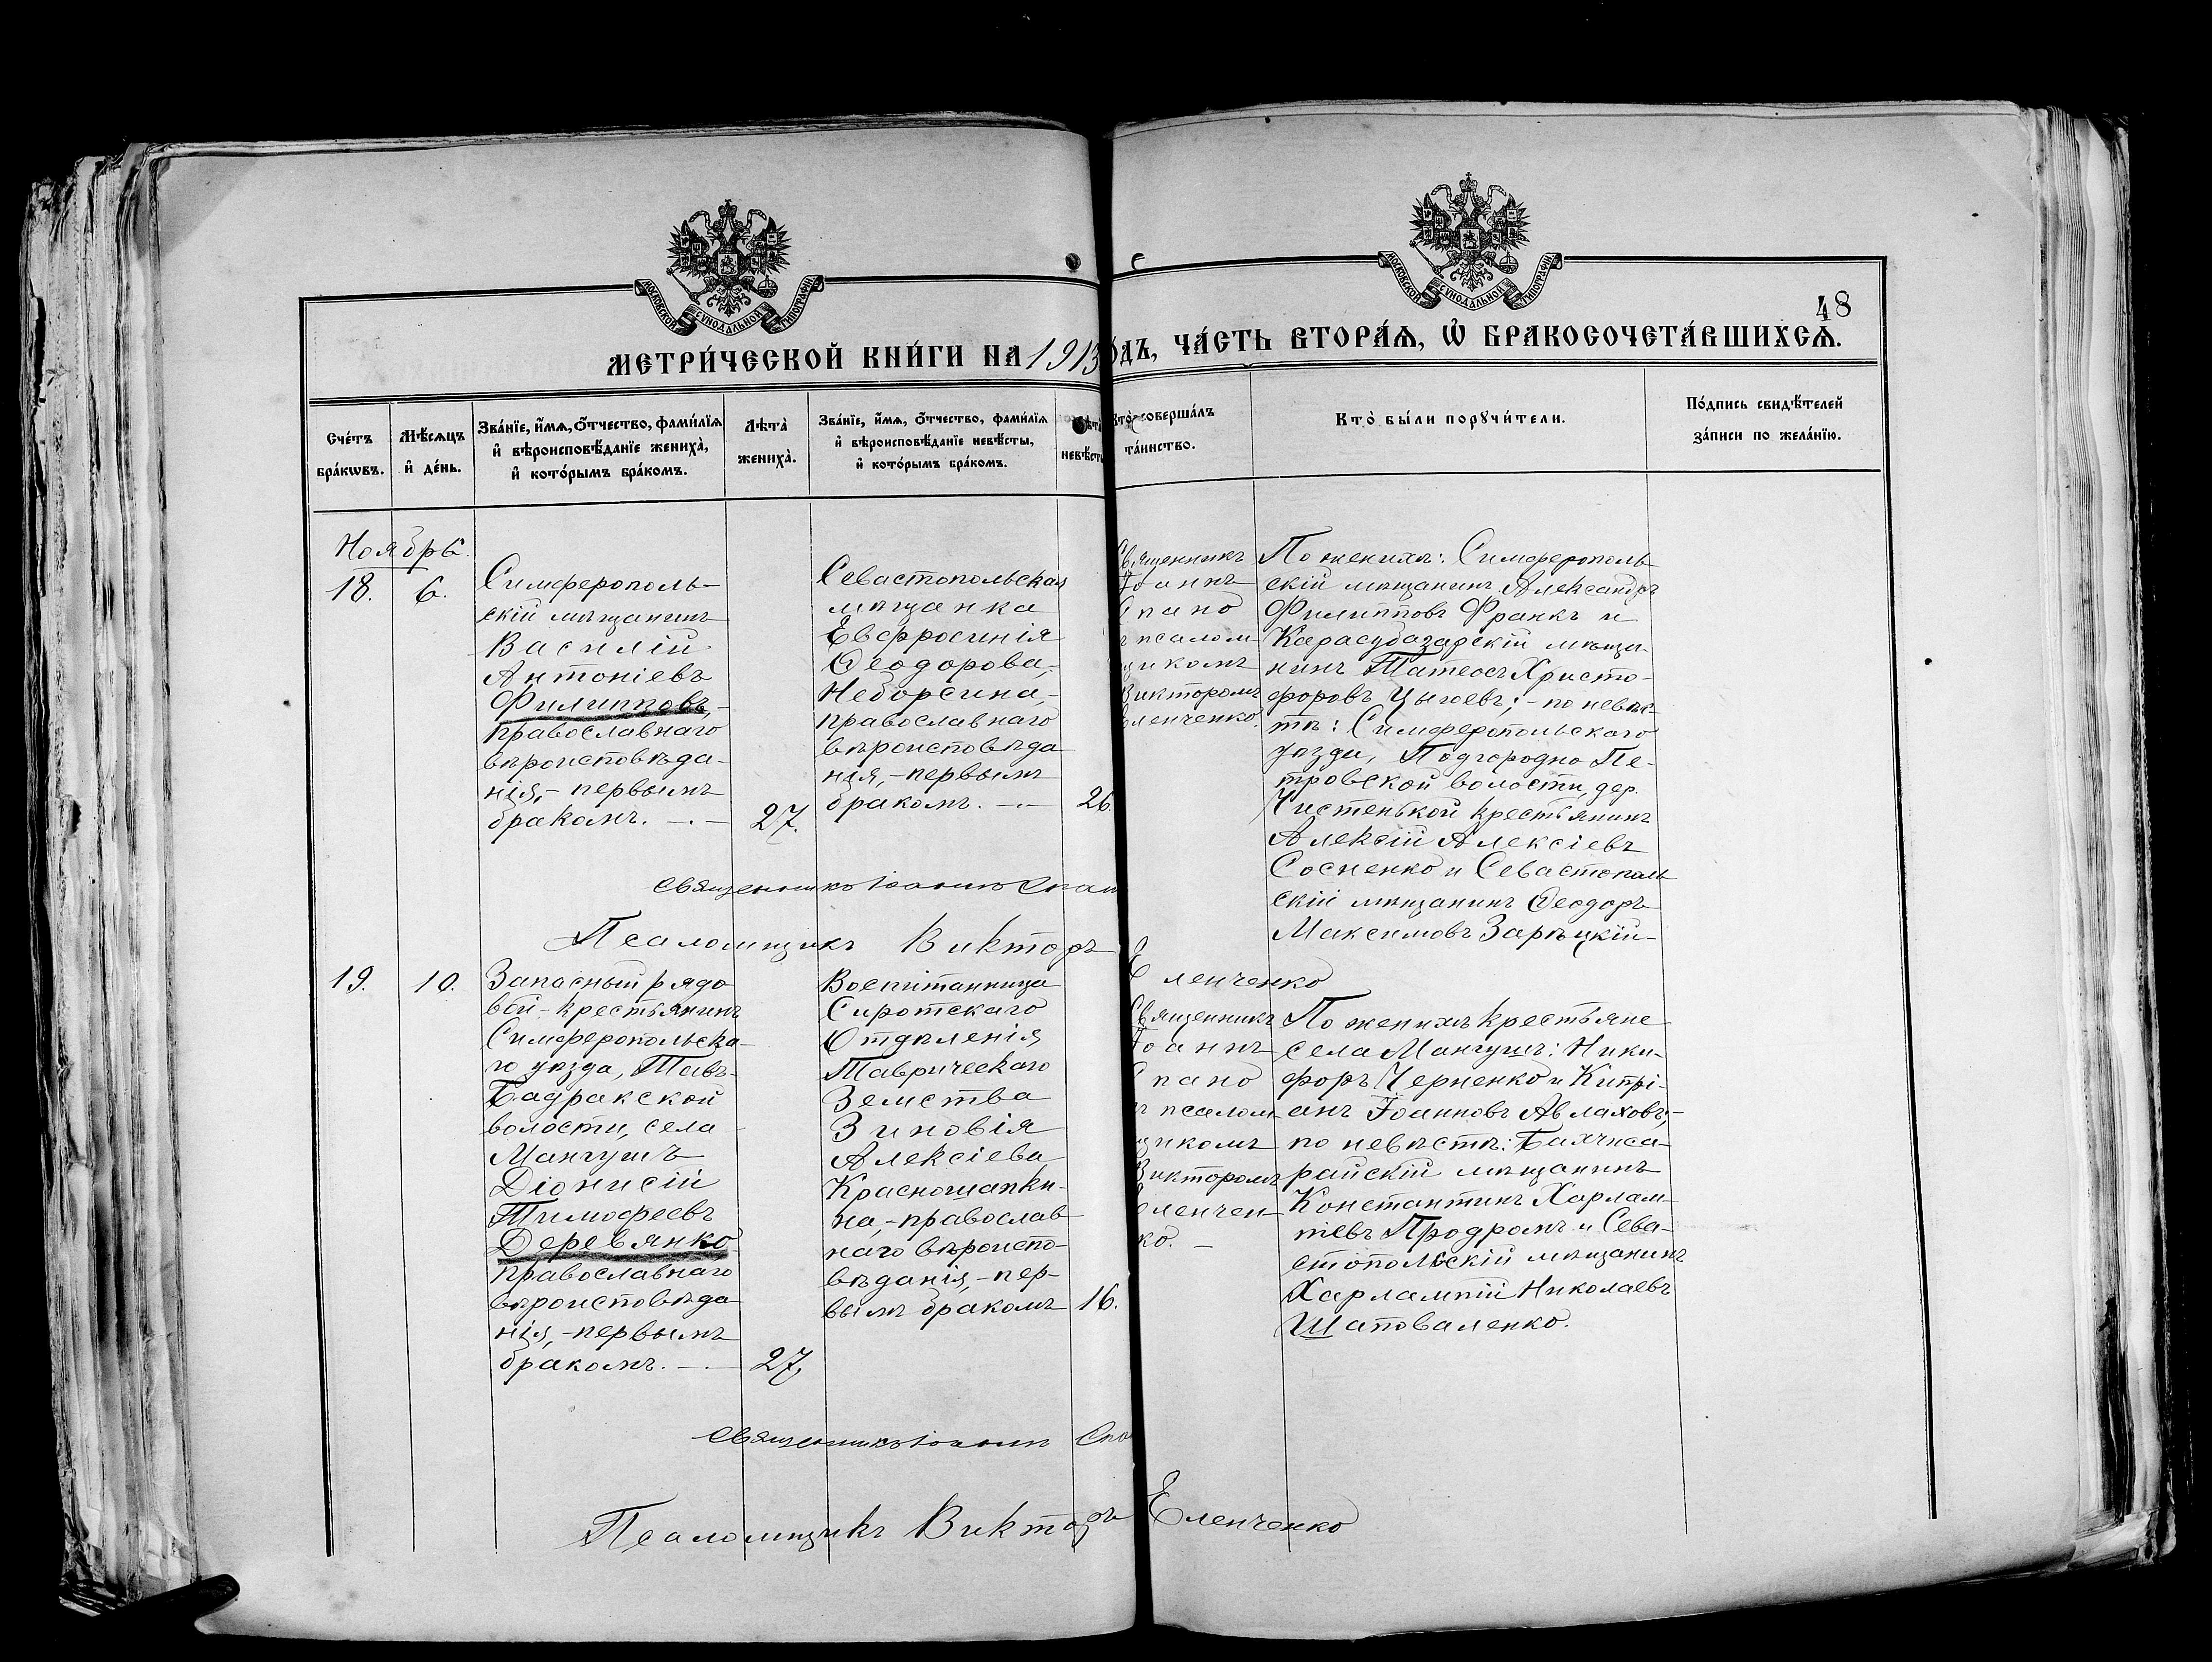 МОСКОВСКОЙ СУНОДАЛЬНОЙ ТИПОГРАФІИ
МОСКОВСКОЙ СУНОДАЛЬНОЙ ТИПОГРАФІИ
48
МЕТРИ́ЧЕСКОЙ КНИ́ГИ НА 1913
О́ДЪ, ЧА́СТЬ ВТОРА́Ѧ, Ѡ҆ БРАКОСОЧЕТА́ВШИХСѦ.
Сче́тъ
бра́кѡвъ.
Мѣ́сѧцъ
и҆ де́нь.
Зва́нїе, и҆́мѧ, ѻ҆́тчество, фами́лїѧ
и҆ вѣроисповѣ́данїе жениха̀,
и҆ кото́рымъ бра́комъ.
Лѣта̀
жениха̀.
Зва́нїе, и҆́мѧ, ѻ҆́тчество, фами́лїѧ
и҆ вѣроисповѣ́данїе невѣ́сты,
и҆ кото́рымъ бра́комъ.
Лѣта
невѣ́сты
Кто̀ соверша́лъ
та́инство.
Кто̀ бы́ли порꙋчи́тели.
По́дпись свидѣ́телей
за́писи по жела́нїю.
Ноябрь.
18.
6.
Симферополь-
скій мѣщанинъ
Василій
Антоніевъ
Филипповъ,-
православнаго
вѣроисповѣда-
нія,- первымъ
бракомъ. -.-
27.
Севастопольская
мѣщанка
Евфросинія
Ѳеодорова,-
Неборсина,-
православнаго
вѣроисповѣда
нія,-первымъ
бракомъ. -.-
26.
Священникъ
Іоаннъ
Спано
ъ псалом
щикомъ
Викторомъ
Еленченко.
По женихѣ: Симферополь
скій мѣщанинъ Александръ
Филипповъ Франкъ и
Карасубазарскій мѣща-
нинъ Татеосъ Христо-
форовъ Цыгоевъ; - по невѣс-
тѣ: Симферопольскаго
уѣзда, Подгородно Пе-
тровской волости, дер.
Чистенькой крестьянинъ
Алексій Алексіевъ
Сосненко и Севастополь
скій мѣщанинъ Ѳеодоръ
Максимовъ Зарѣцкій-
Священникъ Іоаннъ Спан
Псаломщикъ Викторъ
Еленченко
19.
10.
Запасный рядо
вой - крестьянинъ
Симферопольска-
го уѣзда, Тавъ-
Бадракской
волости, села
Мангушъ
Діонисій
Тимофеевъ
Деревянко
православнаго
вѣроисповѣда
нія,-первымъ
бракомъ. -.-
27.
Воспитанница
Сиротскаго
Отдѣленія
Таврическаго
Земства
Зиновія
Алексіева
Красношапки-
на,-православ
наго вѣроиспо-
вѣданія,-пер-
вымъ бракомъ
16.
Священникъ
Іоаннъ
Спано
ъ псалом
щикомъ
Викторомъ
Еленчен-
ко. -
По женихѣ крестьяне
села Мангушъ: Ники-
форъ Черненко и Кипрі-
анъ Іоанновъ Авлаховъ,-
по невѣстѣ: Бахчиса-
райскій мѣщанинъ
Константинъ Харлам-
піевъ Продромъ и Сева-
стопольскій мѣщанинъ
Харлампій Николаевъ
Шаповаленко.
Священникъ Іоаннъ Спа
Псаломщикъ Викторъ
Еленченко